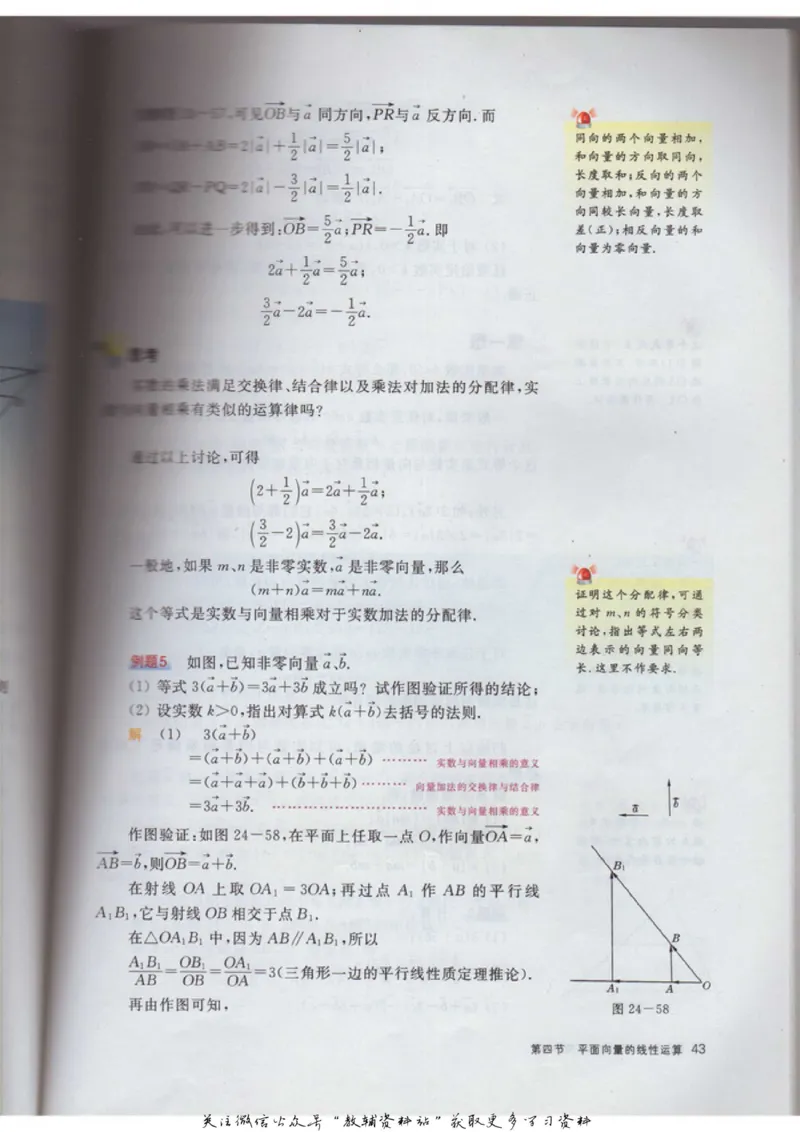 可见OB与a 同方向,PR与a 反方向.而
AB=2|a|+1/2|a|=5/2|a|;
PQ=2|a|-3/2|a|=1/2|a|.
可以进一步得到:OB=5/2a;PR=-1/2a.即
2a+1/2a=5/2a;
3/2a-2a=-1/2a.
同向的两个向量相加,
和向量的方向取同向,
长度取和;反向的两个
向量相加,和向量的方
向同较长向量,长度取
差(正);相反向量的和
向量为零向量.
思考
实数的乘法满足交换律、结合律以及乘法对加法的分配律,实
数与向量相乘有类似的运算律吗?
通过以上讨论,可得
(2+1/2)a=2a+1/2a;
(3/2-2)a=3/2a-2a.
一般地,如果 m、n 是非零实数,a 是非零向量,那么
(m+n)a=ma+na.
这个等式是实数与向量相乘对于实数加法的分配律.
证明这个分配律,可通
过对 m、n 的符号分类
讨论,指出等式左右两
边表示的向量同向等
长.这里不作要求.
例题5 如图,已知非零向量 a、b.
(1) 等式 3(a+b)=3a+3b 成立吗? 试作图验证所得的结论;
(2) 设实数 k>0,指出对算式 k(a+b)去括号的法则.
解 (1) 3(a+b)
=(a+b)+(a+b)+(a+b) ……… 实数与向量相乘的意义
=(a+a+a)+(b+b+b) ……… 向量加法的交换律与结合律
=3a+3b. ……………………… 实数与向量相乘的意义
作图验证:如图 24-58,在平面上任取一点 O,作向量OA=a,
AB=b,则OB=a+b.
在射线 OA 上取 OA₁=3OA;再过点 A₁ 作 AB 的平行线
A₁B₁,它与射线 OB 相交于点 B₁.
在△OA₁B₁ 中,因为 AB∥A₁B₁,所以
A₁B₁/AB=OB₁/OB=OA₁/OA=3(三角形一边的平行线性质定理推论).
再由作图可知,
a b
B₁
B
A₁ A O
图 24-58
第四节 平面向量的线性运算 43
关注微信公众号"教辅资料站"获取更多学习资料